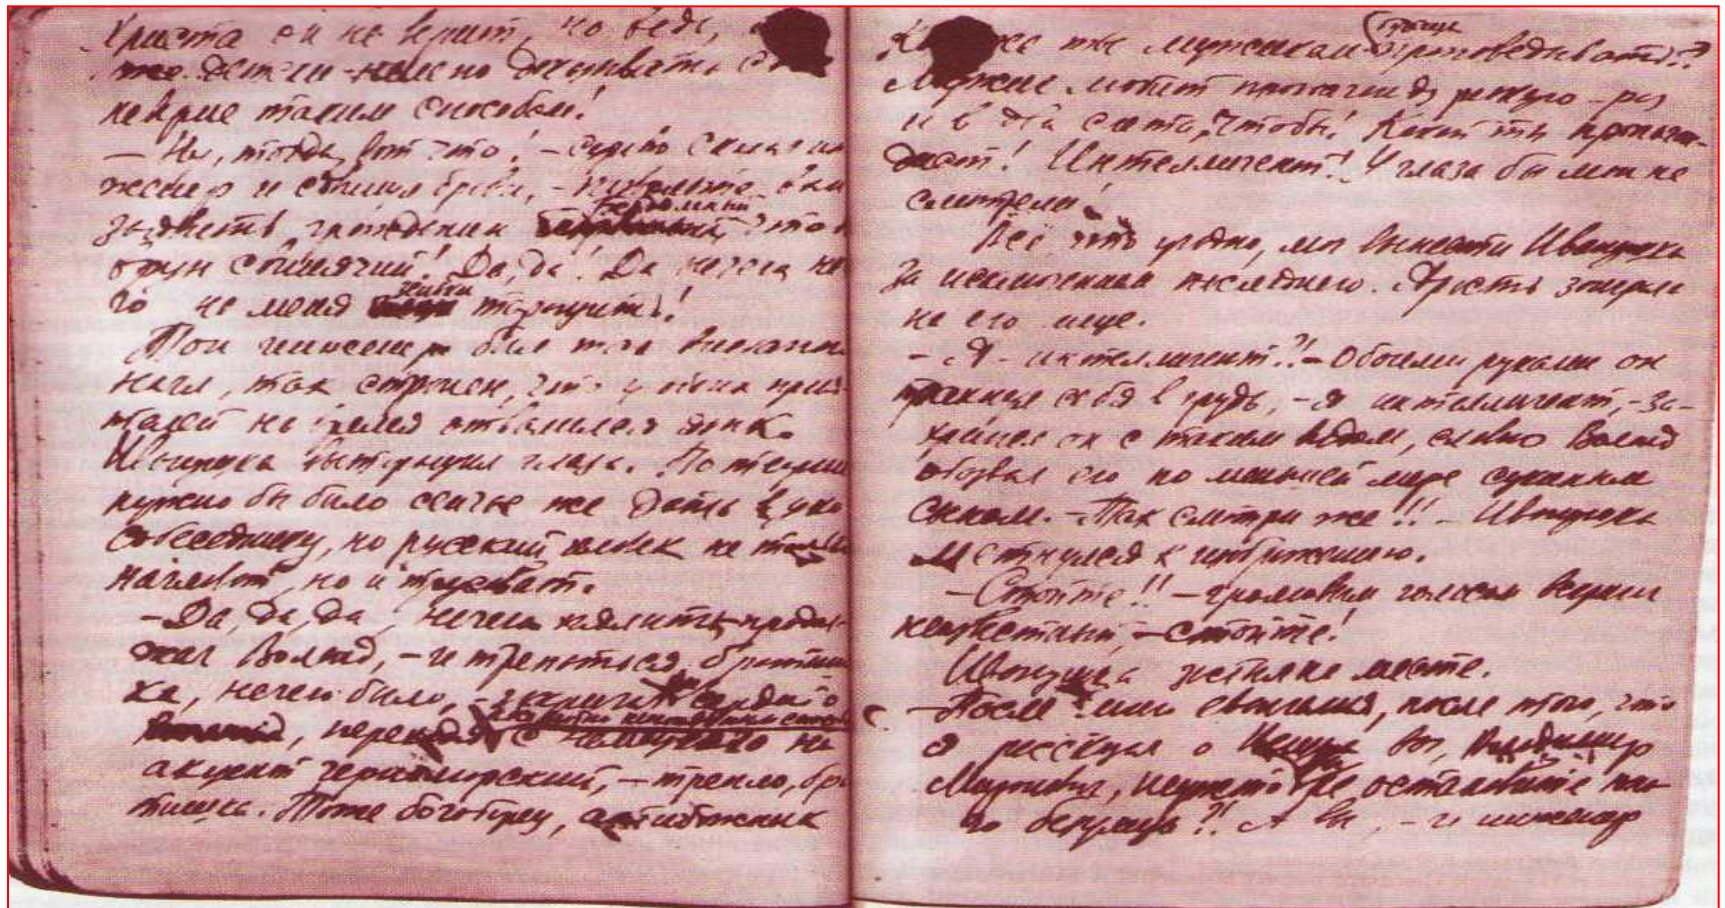 Христа он не верит, но ведь,
же детски-нелепо доказывать свое
неверие таким способом!
— Ну, тогда вот что! — сурово сказал ин
женер и сдвинул брови, — позвольте вам
заявить, гражданин Бездомный, что
врун свинячий! Да, да! Да нечего
на меня зенки таращить!
Тон инженера был так внезапно
нагл, так странен, что у обоих прия
телей на время отвалился язык.
Иванушка вытаращил глаза. По теории
нужно бы было сейчас же дать в ухо
собеседнику, но русский человек не только
нагловат, но и трусоват.
— Да, да, да, нечего пялить, — продол
жал Воланд, — и трепаться, братиш
ка, нечего было, — закричал он сердито
, переходя с немецкого на
акцент черноморский, — трепло, бра
тишка. Тоже богоборец, антибожник
Как же ты мужикам будешь проповедывать?!
Мужик любит пропаганду резкую — раз
и в два счета, чтобы! Какой ты пропаган-
дист! Интеллигент! У глаза бы мои не
смотрели!
Все что угодно, мог вынести Иванушка
за исключением последнего. Ярость заиграла
на его лице.
— Я — интеллигент?! — Обоими руками он
трахнул себя в грудь, — я интеллигент, — за-
хрипел он с таким видом, словно Воланд
обозвал его по меньшей мере сукиным
сыном. — Так смотри же!! — Иванушка
метнулся к изображению.
— Стойте!! — громовым голосом вскричал
неизвестный, — стойте!
Иванушка застыл на месте.
— После моего евангелия, после того, что
я рассказал о Иешуа, вы, Владимир
Миронович, неужто не остановите юно-
го безумца?! А вы, — и инженер